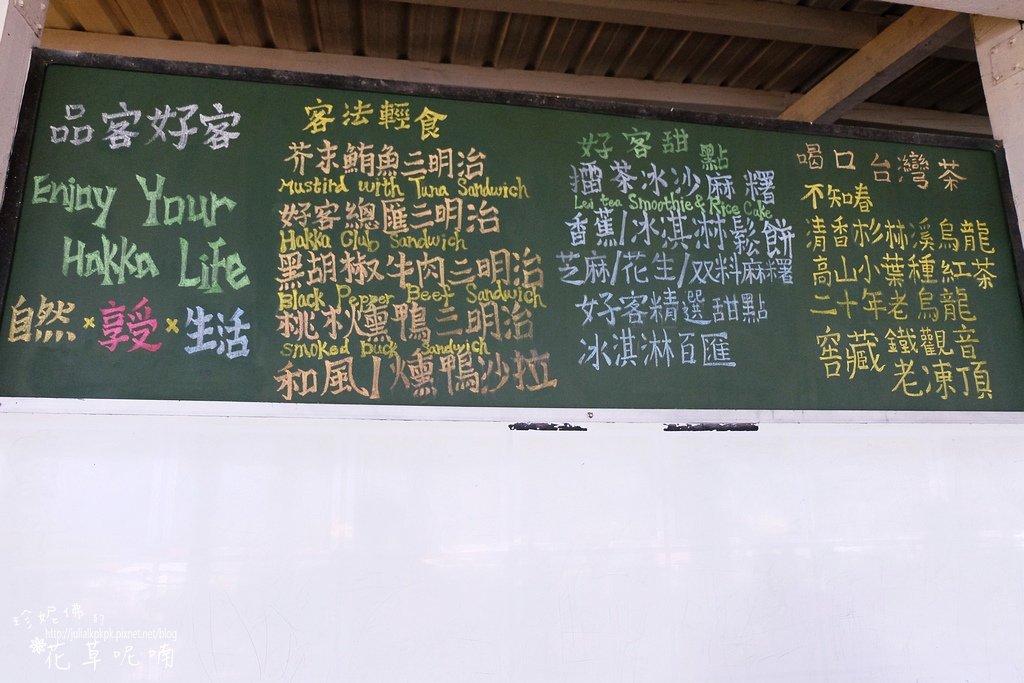 品客好客
Enjoy Your
Hakka Life
自然×享受×生活
客法輕食
芥末鮪魚三明治
Mustird with Tuna Sandwich
好客總匯三明治
Hakka Club Sandwich
黑胡椒牛肉三明治
Black Pepper Beef Sandwich
桃木燻鴨三明治
Smoked Duck Sandwich
和風/燻鴨沙拉
好客甜點
擂茶冰沙麻糬
Lei tea Smoothie & Rice Cake
香蕉/冰淇淋鬆餅
芝麻/花生/双料麻糬
好客精選甜點
冰淇淋百匯
喝口台灣茶
不知春
清香杉林溪烏龍
高山小葉種紅茶
二十年老烏龍
窖藏鐵觀音
老凍頂
珍妮佛的
http://julialkpkpk.pixnet.net/blog
花草呢喃